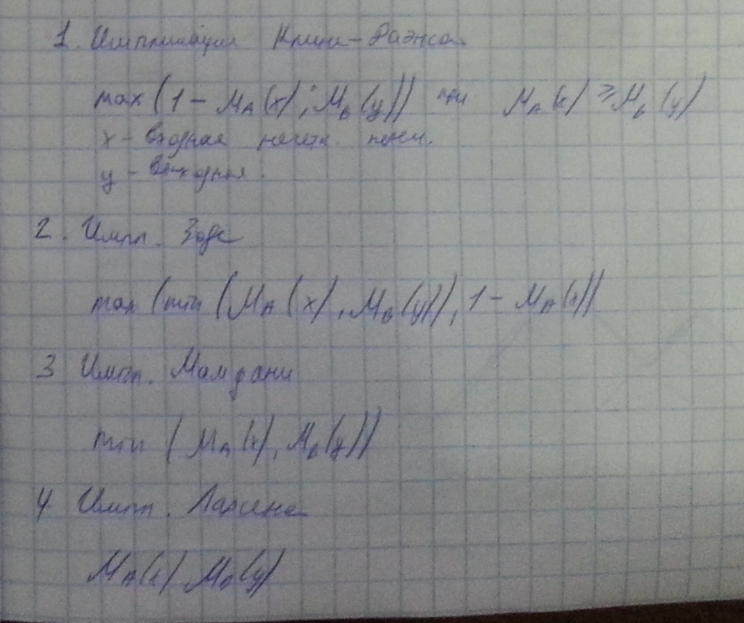 1. Импликация Клини-Дайнса
max (1 - Mₐ(x); M_b(y)) при Mₐ(x) ≥ M_b(y)
x - входная нечетк. перем.
y - выходная.
2. Импл. Заде
max (min (Mₐ(x), M_b(y)), 1 - Mₐ(x))
3 Импл. Мамдани
min (Mₐ(x), M_b(y))
4 Импл. Ларсена
Mₐ(x) M_b(y)